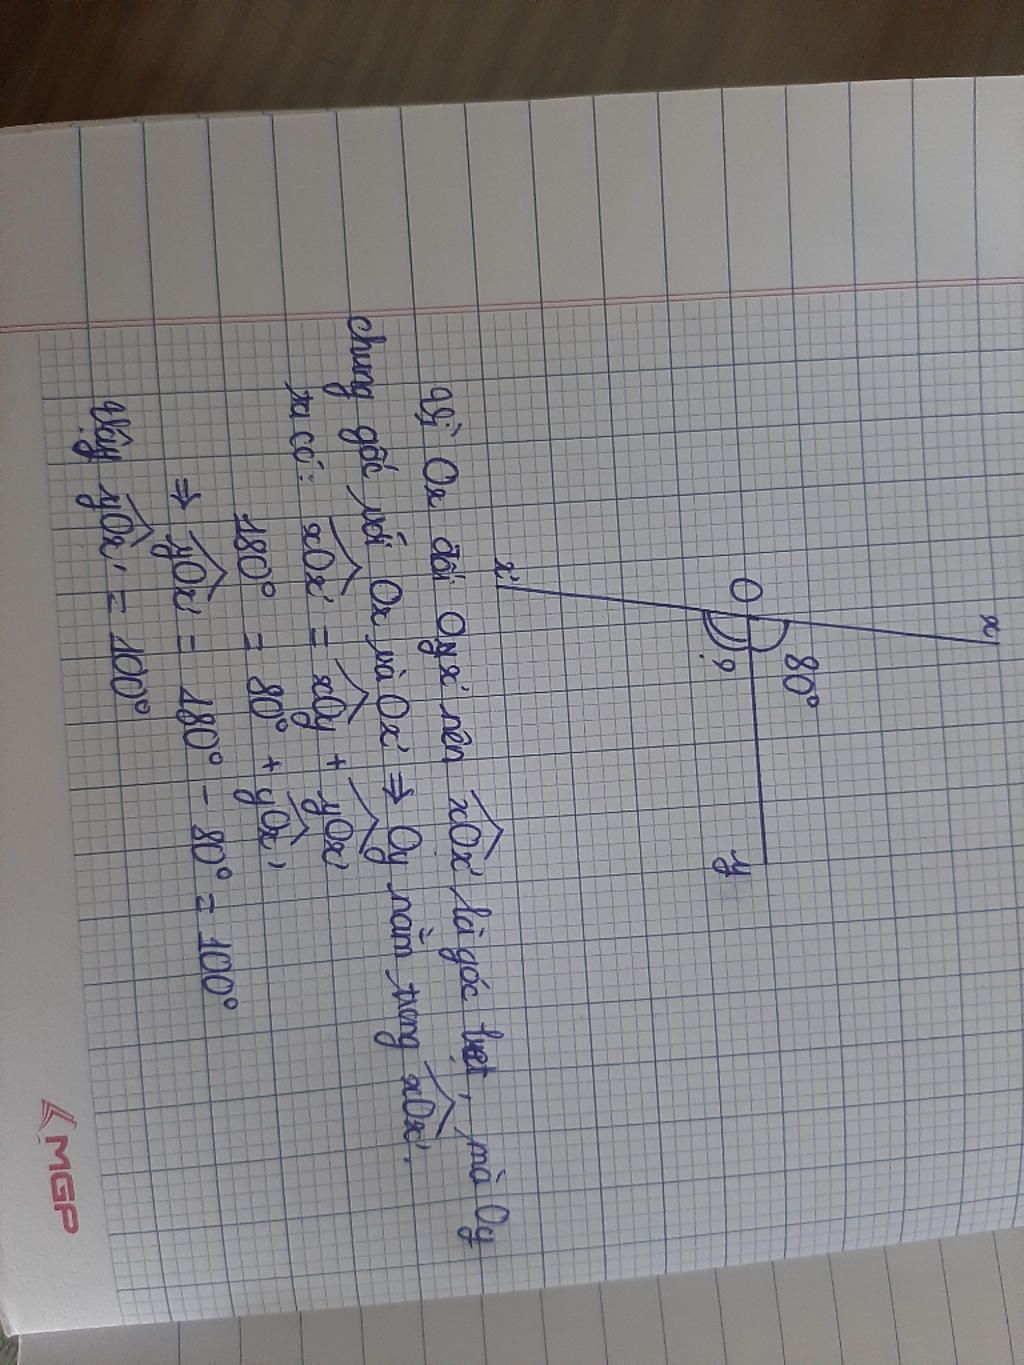 x
80°
O
?
y
x'
Vì Ox đối Oyx' nên xOx' là góc bẹt, mà Oy
chung gốc với Ox và Ox' ⇒ Oy nằm trong xOx'.
ta có: xOx' = xOy + yOx'
180° = 80° + yOx'
⇒ yOx' = 180° - 80° = 100°
Vậy yOx' = 100°
MGP